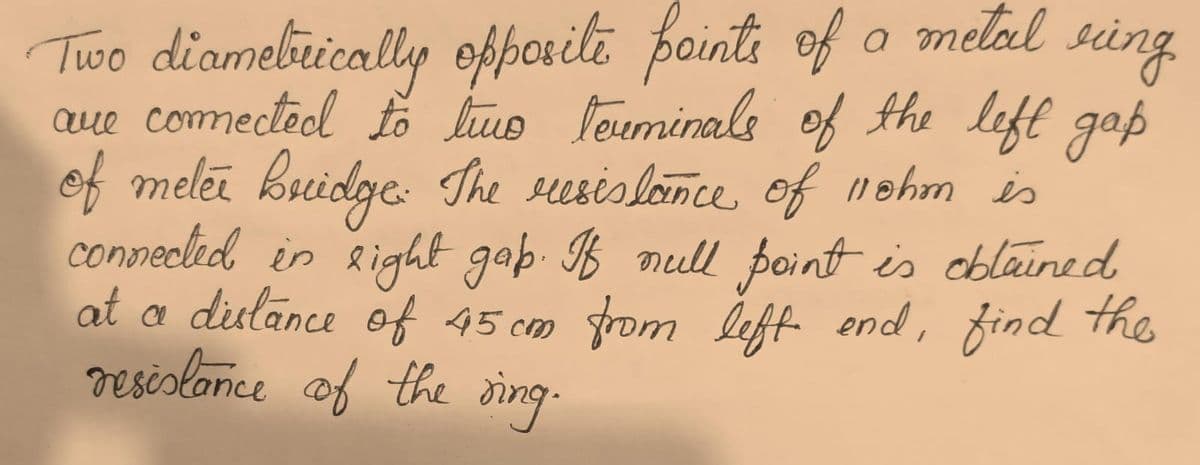 Two diametrically opposite points of a metal ring
are connected to two terminals of the left gap
of meter bridge. The resistance of 11 ohm is
connected in right gap. If null point is obtained
at a distance of 45 cm from left end, find the
resistance of the ring.